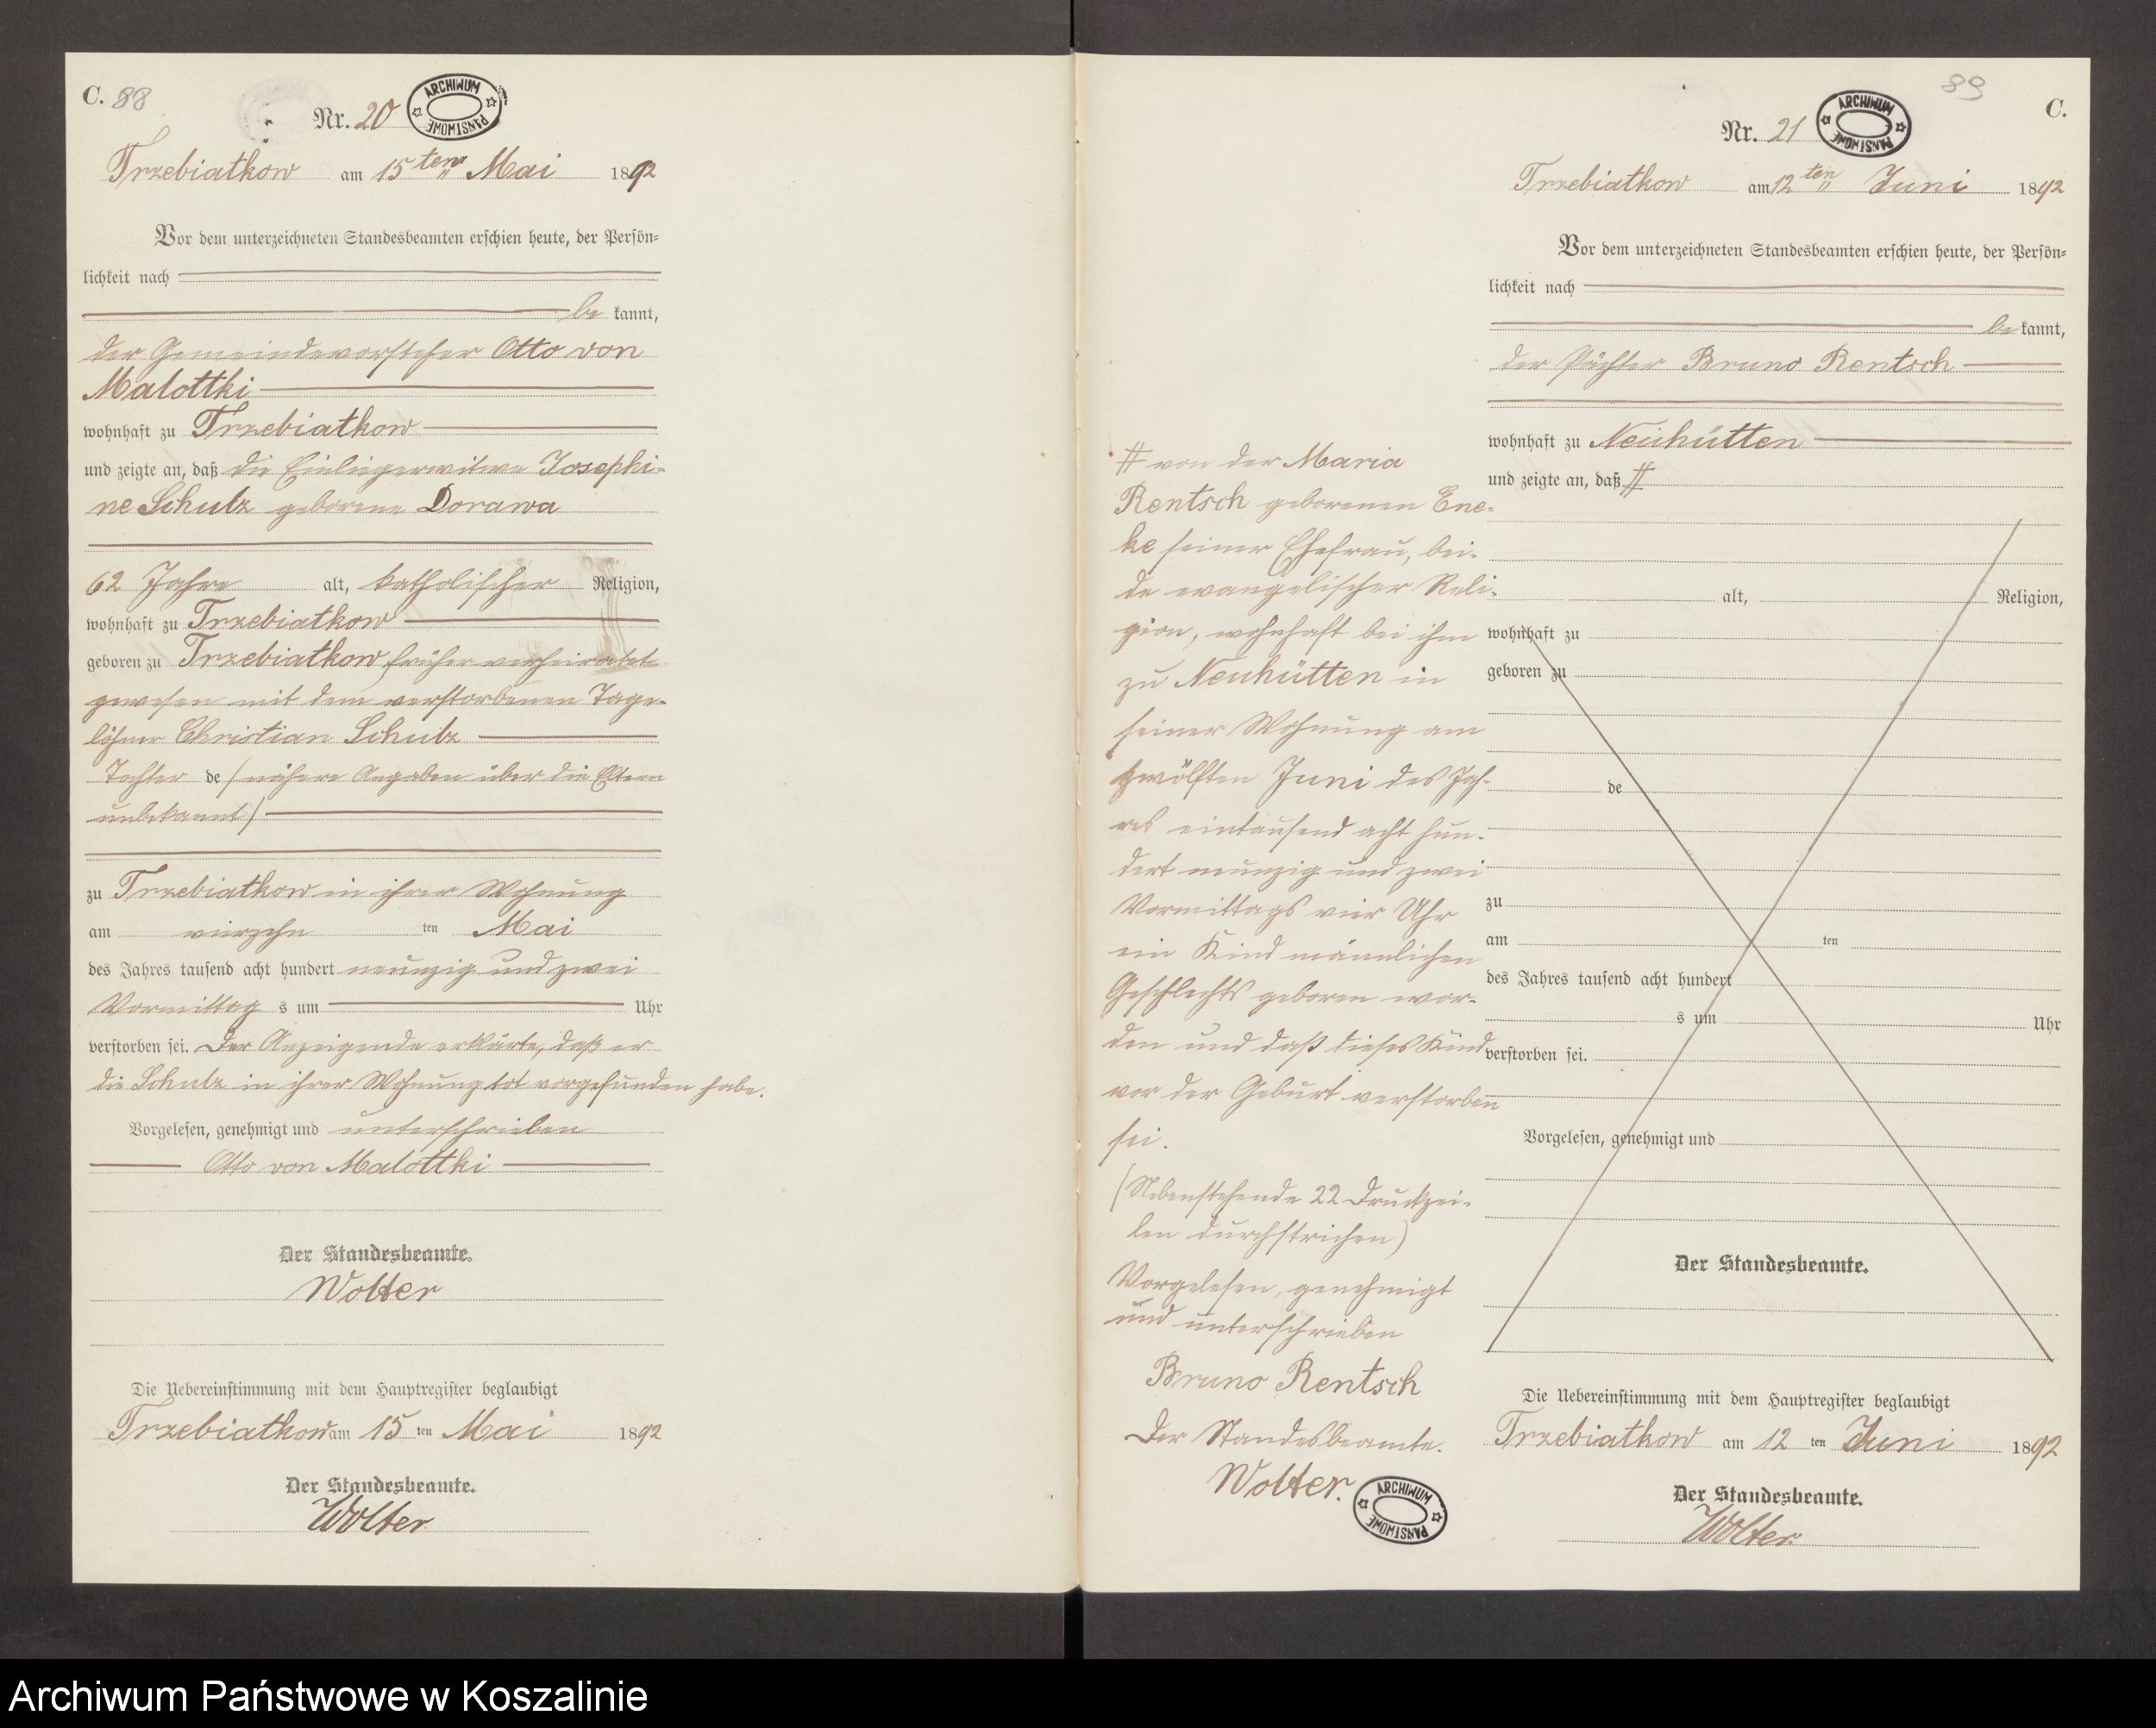 C. 88
Nr. 20
ARCHIWUM PAŃSTWOWE
Trzebiatkow am 15ten Mai 1892
Vor dem unterzeichneten Standesbeamten erschien heute, der Persön-
lichkeit nach
be kannt,
der Gemeindevorsteher Otto von
Malottki
wohnhaft zu Trzebiatkow
und zeigte an, daß die Einliegerwitwe Josephi-
ne Schulz geborene Dorawa
62 Jahre alt, katholischer Religion,
wohnhaft zu Trzebiatkow
geboren zu Trzebiatkow, früher verheiratet
gewesen mit dem verstorbenen Tage-
löhner Christian Schulz
Tochter de (nähere Angaben über die Eltern
unbekannt)
zu Trzebiatkow in ihrer Wohnung
am vierzehn ten Mai
des Jahres tausend acht hundert neunzig und zwei
Vormittag s um Uhr
verstorben sei. Der Anzeigende erklärte, daß er
die Schulz in ihrer Wohnung tot vorgefunden habe.
Vorgelesen, genehmigt und unterschrieben
Otto von Malottki
Der Standesbeamte.
Wolter
Die Uebereinstimmung mit dem Hauptregister beglaubigt
Trzebiatkow am 15 ten Mai 1892
Der Standesbeamte.
Wolter
89
C.
Nr. 21
ARCHIWUM PAŃSTWOWE
Trzebiatkow am 12ten Juni 1892
Vor dem unterzeichneten Standesbeamten erschien heute, der Persön-
lichkeit nach
be kannt,
der Pächter Bruno Rentsch
wohnhaft zu Neuhütten
und zeigte an, daß #
# von der Maria
Rentsch geborenen Ene-
ke seiner Ehefrau, bei-
de evangelischer Reli-
gion, wohnhaft bei ihm
zu Neuhütten in
seiner Wohnung am
zwölften Juni des Jah-
res eintausend acht hun-
dert neunzig und zwei
Vormittags vier Uhr
ein Kind männlichen
Geschlechts geboren wor-
den und daß dieses Kind
vor der Geburt verstorben
sei.
(Nebenstehende 22 Druckzei-
len durchstrichen)
Vorgelesen, genehmigt
und unterschrieben
Bruno Rentsch
Der Standesbeamte.
Wolter.
ARCHIWUM PAŃSTWOWE
alt, Religion,
wohnhaft zu
geboren zu
de
zu
am ten
des Jahres tausend acht hundert
s um Uhr
verstorben sei.
Vorgelesen, genehmigt und
Der Standesbeamte.
Die Uebereinstimmung mit dem Hauptregister beglaubigt
Trzebiatkow am 12 ten Juni 1892
Der Standesbeamte.
Wolter.
Archiwum Państwowe w Koszalinie